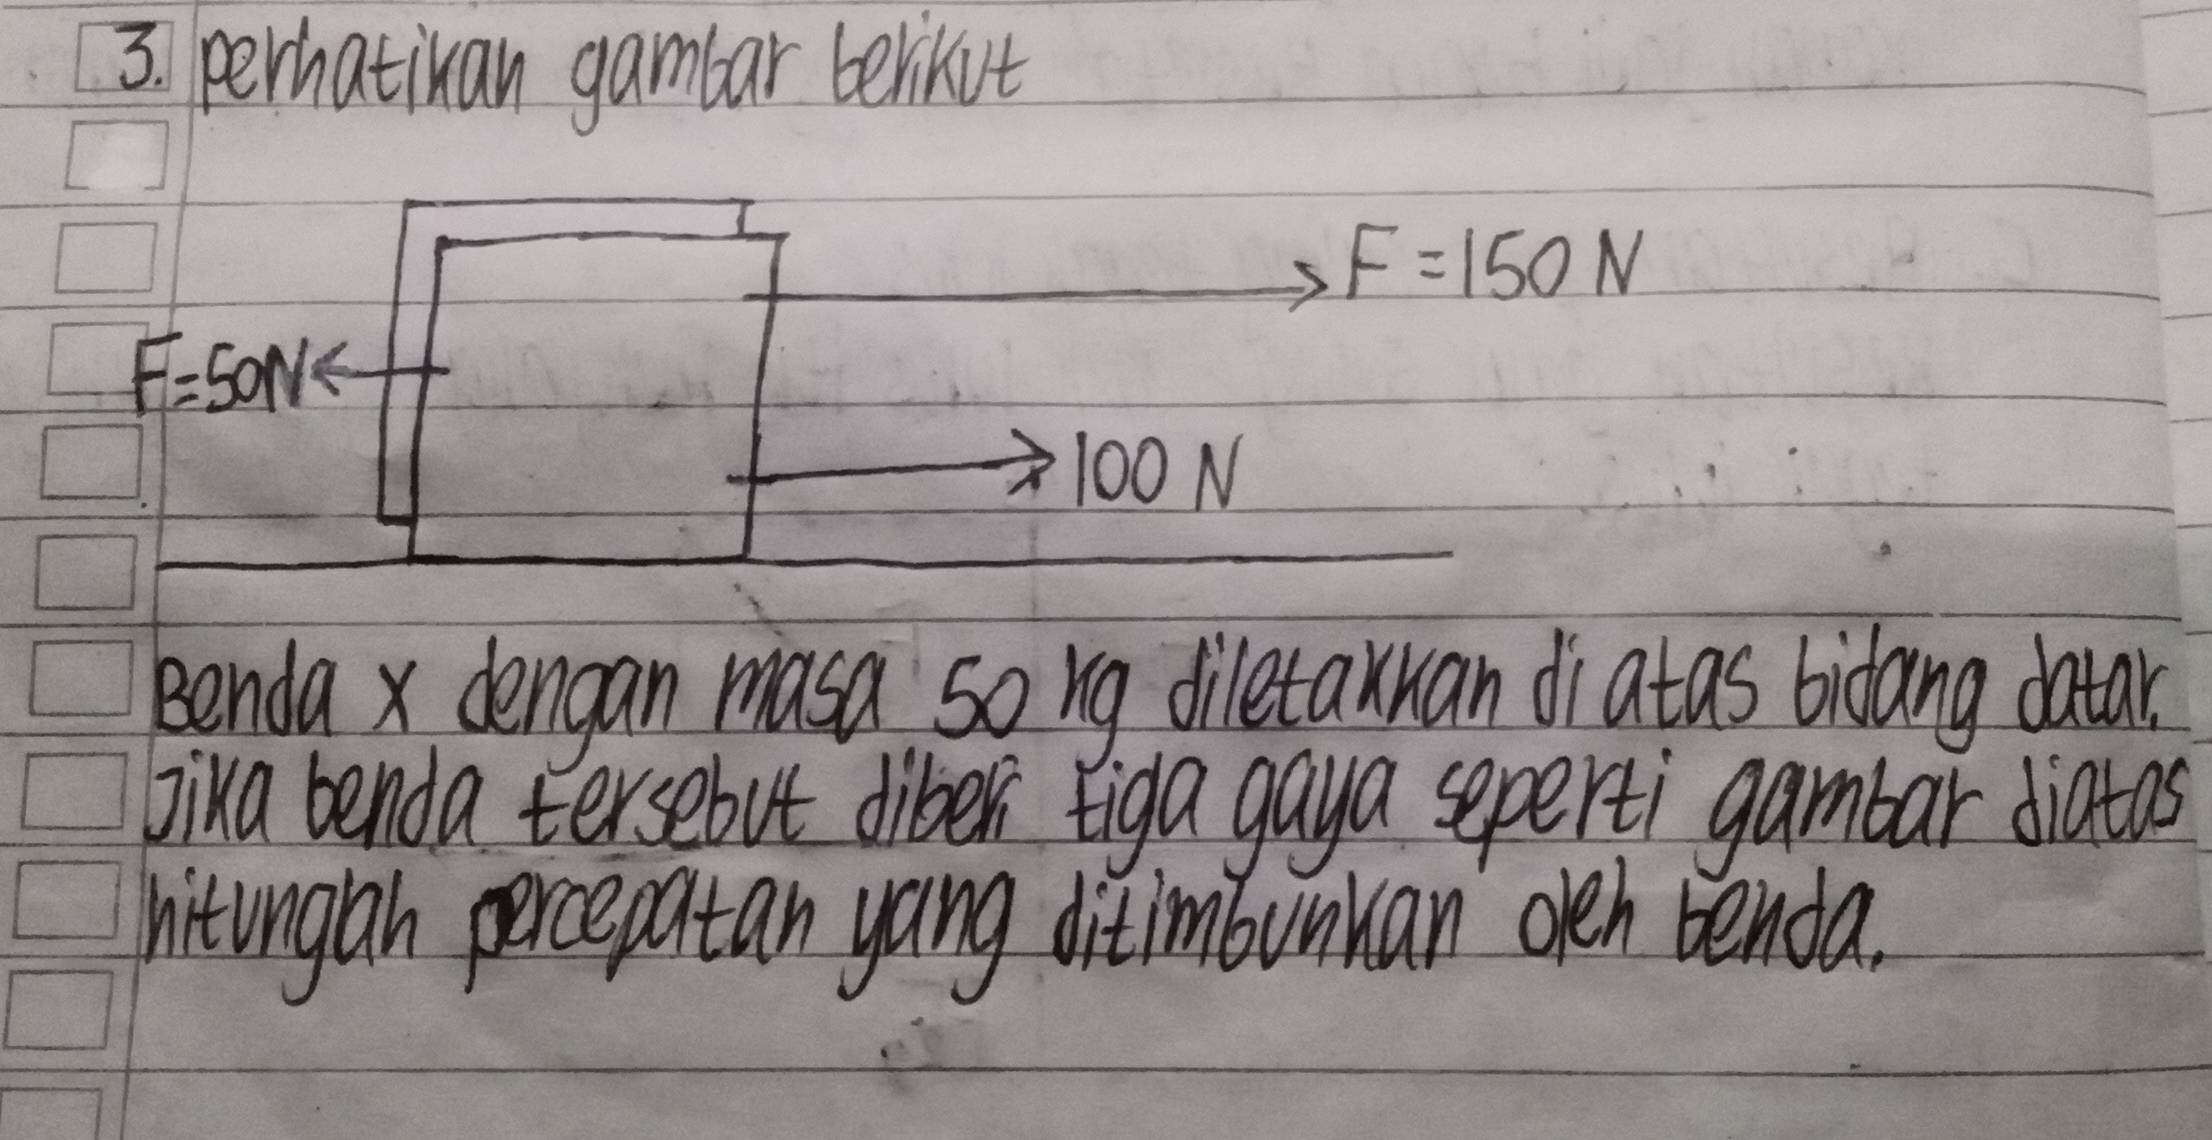 3. perhatikan gambar berikut
F = 150 N
F = 50N
100 N
Benda x dengan masa 50 kg diletakkan di atas bidang datar.
Jika benda tersebut diberi tiga gaya seperti gambar diatas
hitunglah percepatan yang ditimbunkan oleh benda.